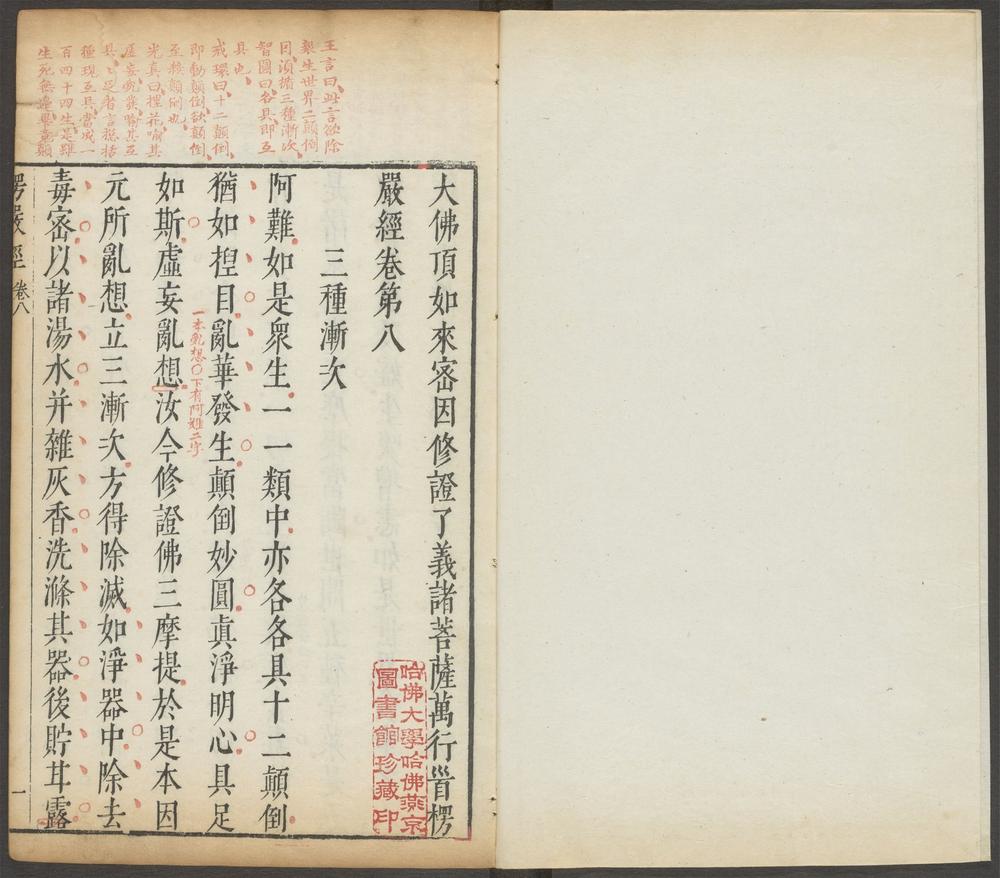 王言曰此言欲除
衆生世界二顛倒
因須搆三種漸次
智圓曰各具即互
具也
戒環曰十二顛倒
即動顛倒欲顛倒
至殺顛倒也
光真曰捏花喻其
虛妄亂華喻其互
具具足者言揔括
種現互具當成一
百四十四生是雖
生死無邊舉意顛
大佛頂如來密因修證了義諸菩薩萬行首楞
嚴經卷第八
三種漸次
阿難如是衆生一一類中亦各各具十二顛倒
猶如捏目亂華發生顛倒妙圓眞淨明心具足
如斯虛妄亂想汝今修證佛三摩提於是本因
一本亂想〇下有阿難二字
元所亂想立三漸次方得除滅如淨器中除去
毒密以諸湯水并雜灰香洗滌其器後貯甘露
楞嚴經 卷八 一
哈佛大學哈佛燕京
圖書館珍藏印